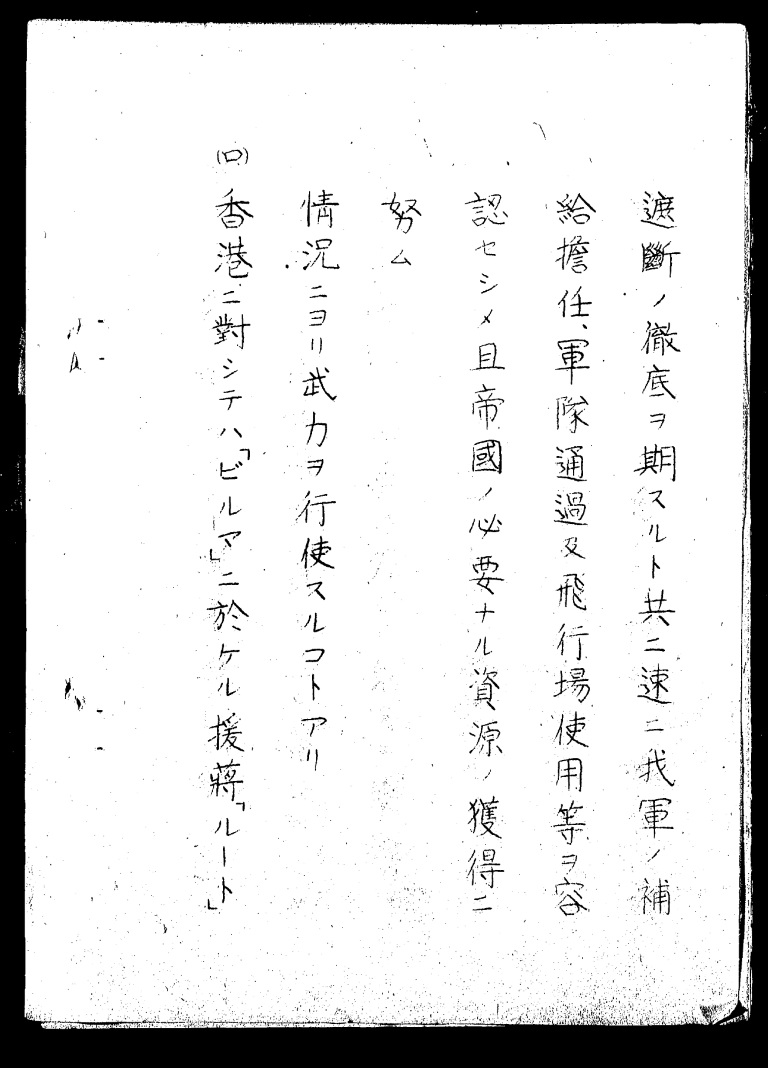 遮斷ノ徹底ヲ期スルト共ニ速ニ我軍ノ補
給擔任、軍隊通過及飛行場使用等ヲ容
認セシメ且帝國ノ必要ナル資源ノ獲得ニ
努ム
情況ニヨリ武力ヲ行使スルコトアリ
(ロ)香港ニ對シテハ「ビルマ」ニ於ケル援蔣「ルート」